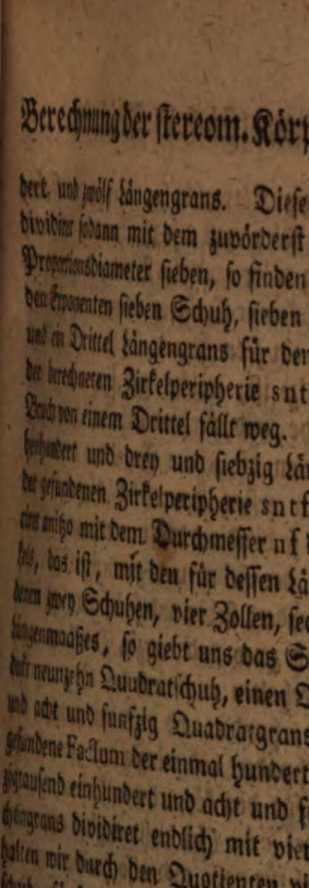 Berechnung der stereom. Körp
dert und zwölf Längengrans. Diese
dividirt sodann mit dem zuvörderst
Proportionsdiameter sieben, so finden
den Exponenten sieben Schuh, sieben
und ein Drittel Längengrans für den
der berechneten Zirkelperipherie snt
Bruch von einem Drittel fällt weg.
hundert und drey und siebzig Län
der gefundenen Zirkelperipherie sntf
mit dem Durchmesser nf
das ist, mit den für dessen Lä
zwey Schuhen, vier Zollen, sec
Längenmaaßes, so giebt uns das
neunzehn Quudratschuh, einen
und acht und funfzig Quadratgrans
gefundene Factum der einmal hundert
einhundert und acht und f
dividiret endlich mit vier
halten wir durch den Quotienten